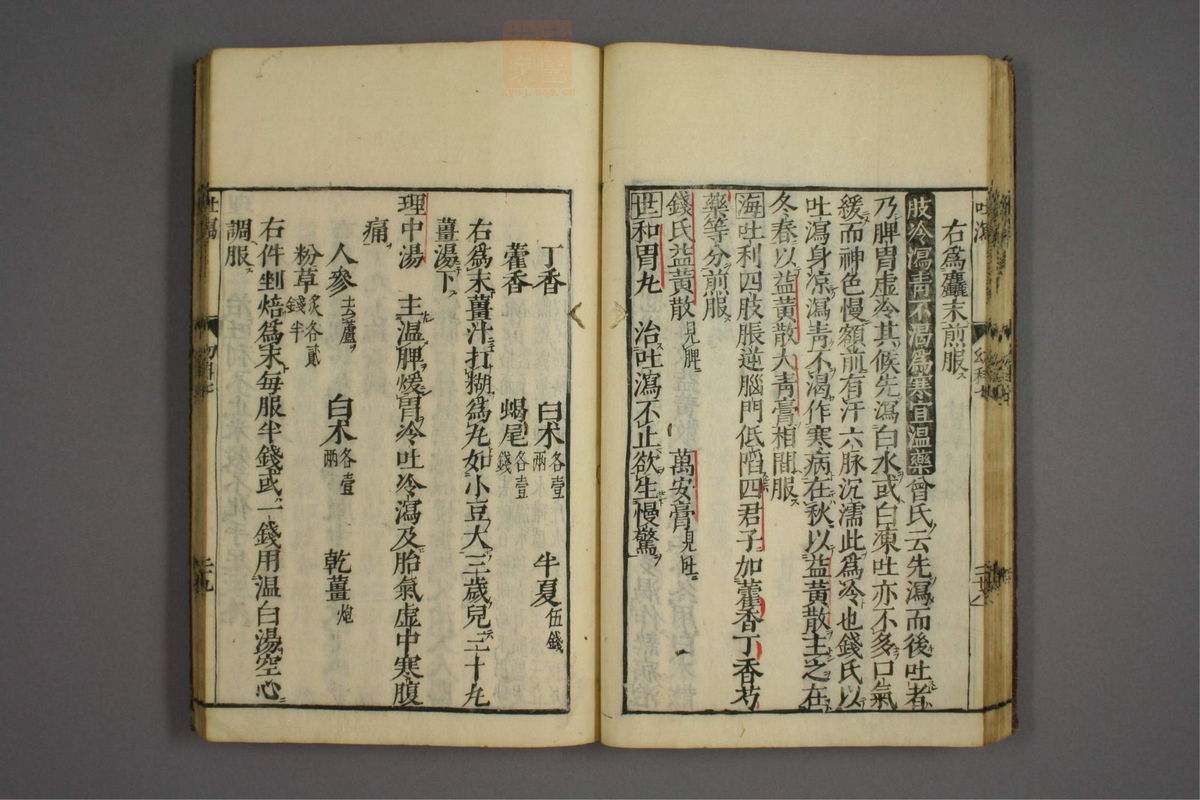 右爲麤末煎服
肢冷瀉靑不渴爲寒且温藥曾氏云先瀉而後吐者
乃脾胃虚冷其候先瀉白水或白凍吐亦不多口氣
緩而神色慢額前有汗六脉沉濡此爲冷也錢氏以
吐瀉身凉瀉靑不渴作寒病在秋以益黄散主之在
冬春以益黄散大靑膏相間服
海吐利四肢脹逆腦門低陷四君子加藿香丁香芍
藥等分煎服
錢氏益黄散見脾 萬安膏見吐
世和胃丸 治吐瀉不止欲生慢驚
吐瀉 幼科七
丁香 白朮各壹兩 半夏伍錢
藿香 蝎尾各壹錢
右爲末薑汁打糊爲丸如小豆大三歲兒三十丸
薑湯下
理中湯 主温脾煖胃冷吐冷瀉及胎氣虚中寒腹
痛
人參去蘆 白朮各壹兩 乾薑炮
粉草炙各貳錢半
右件剉焙爲末每服半錢或一錢用温白湯空心
調服